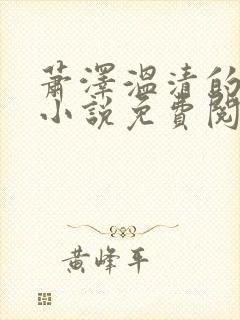 蕭澤溫清的
小說免費閱
黃峰平